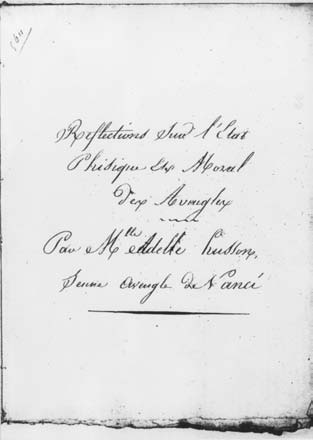 Reflections Sur l'Etat
Phisique Et Moral
des Aveugles
Par Mlle Adelle husson,
Jeune Aveugle de Nanci